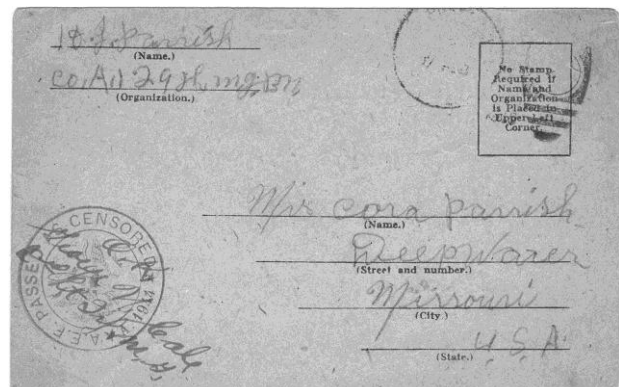 H J Parrish
(Name.)
Co, A, 129th, mg, Bn
(Organization.)
No Stamp
Required if
Name and
Organization
is Placed in
Upper Left
Corner.
Mis cora parrish
(Name.)
Deepwarer
(Street and number.)
Missouri
(City.)
U. S. A.
(State.)
A.E.F. PASSED CENSORED 1931